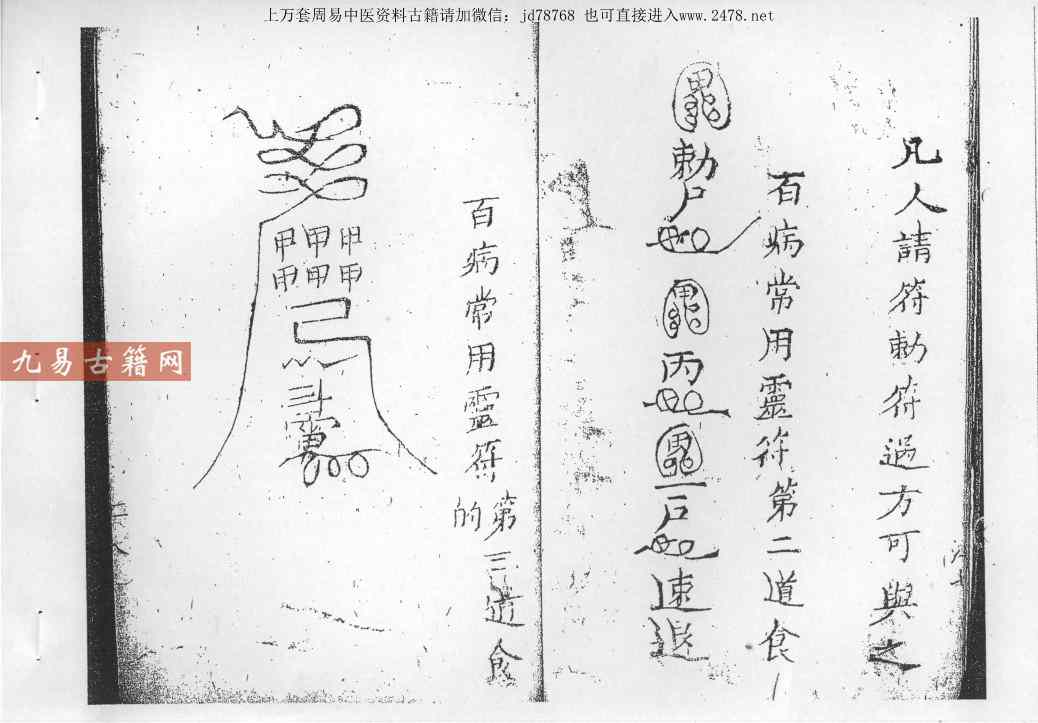 上万套周易中医资料古籍请加微信：jd78768 也可直接进入www.2478.net
凡人請符勅符過方可與之
百病常用靈符第二道食
勅尸
丙
尸
速退
百病常用靈符第三道食
的
甲甲甲
甲甲甲
斗
九易古籍网